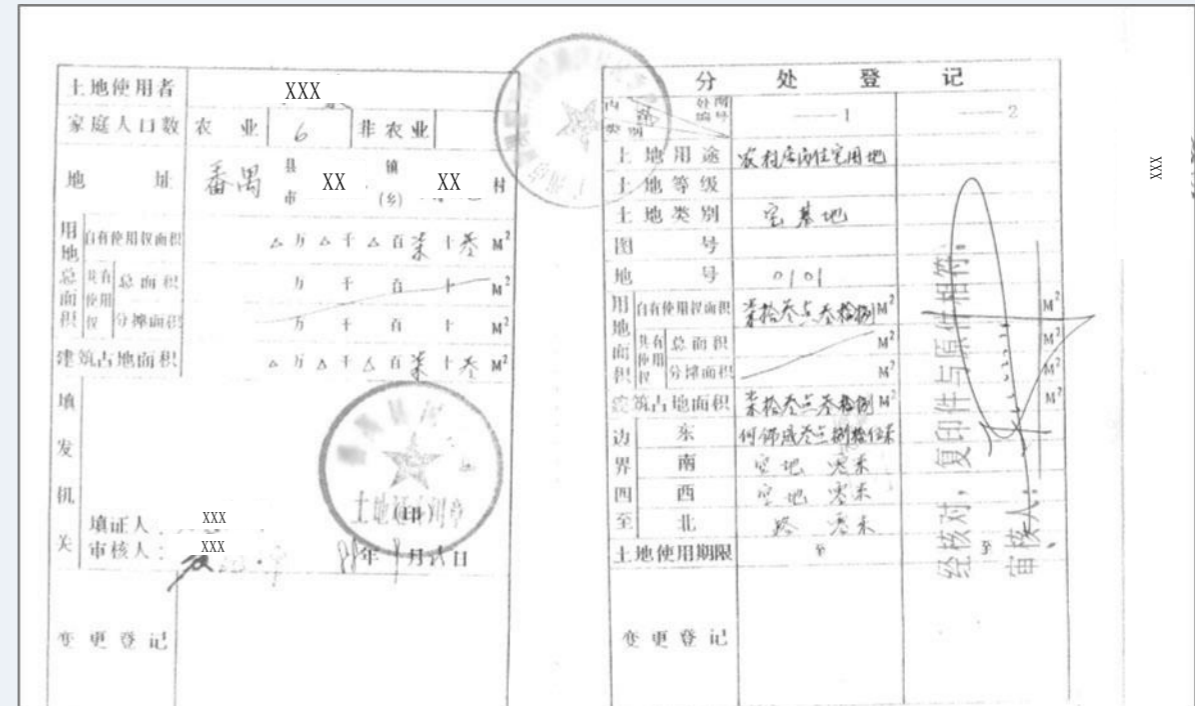 土地使用者 XXX
家庭人口数 农业 6 非农业
地址 番禺 县市 XX 镇(乡) XX 村
用地总面积
自有使用权面积 △万△千△百柒十叁 M²
共有使用权 总面积 万 千 百 十 M²
分摊面积 万 千 百 十 M²
建筑占地面积 △万△千△百柒十叁 M²
填发机关
土地证 (印) 章
填证人: XXX
审核人: XXX
年 月 日
变更登记
分处登记
内容 类别 1 2
土地用途 农村居尚住宅用地
土地等级
土地类别 宅基地
图号
地号 0101
用地面积
自有使用权面积 柒拾叁点叁拾捌 M² M²
共有使用权 总面积 M² M²
分摊面积 M² M²
建筑占地面积 柒拾叁点叁拾捌 M² M²
边界四至
东
南 空地 零米
西 空地 零米
北 路 零米
土地使用期限 至 至
变更登记
经核对,复印件与原件相符。
审核人:
XXX